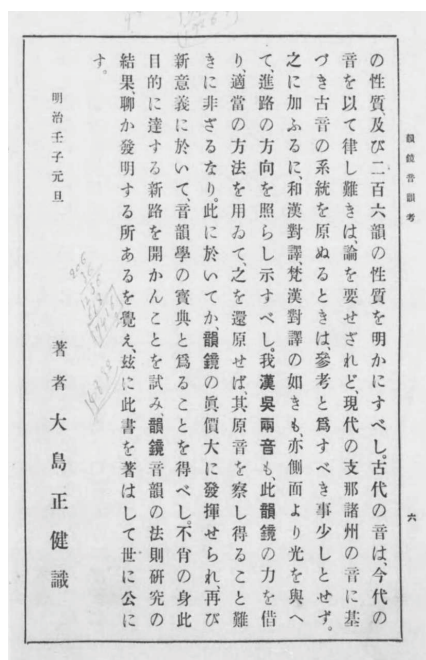 韻鏡音韻考
六
の性質及び二百六韻の性質を明かにすべし。古代の音は、今代の
音を以て律し難きは、論を要せざれど、現代の支那諸州の音に基
づき古音の系統を原ぬるときは、參考と爲すべき事少しとせず。
之に加ふるに、和漢對譯、梵漢對譯の如きも、亦側面より光を與へ
て、進路の方向を照らし示すべし。我漢吳兩音も、此韻鏡の力を借
り、適當の方法を用ゐて、之を還原せば、其原音を察し得ること難
きに非ざるなり。此に於いてか韻鏡の眞價大に發揮せられ、再び
新意義に於いて、音韻學の寶典と爲ることを得べし。不肖の身此
目的に達する新路を開かんことを試み、韻鏡音韻の法則研究の
結果、聊か發明する所あるを覺え、玆に此書を著はして世に公に
す。
明治壬子元旦
著者 大島正健識